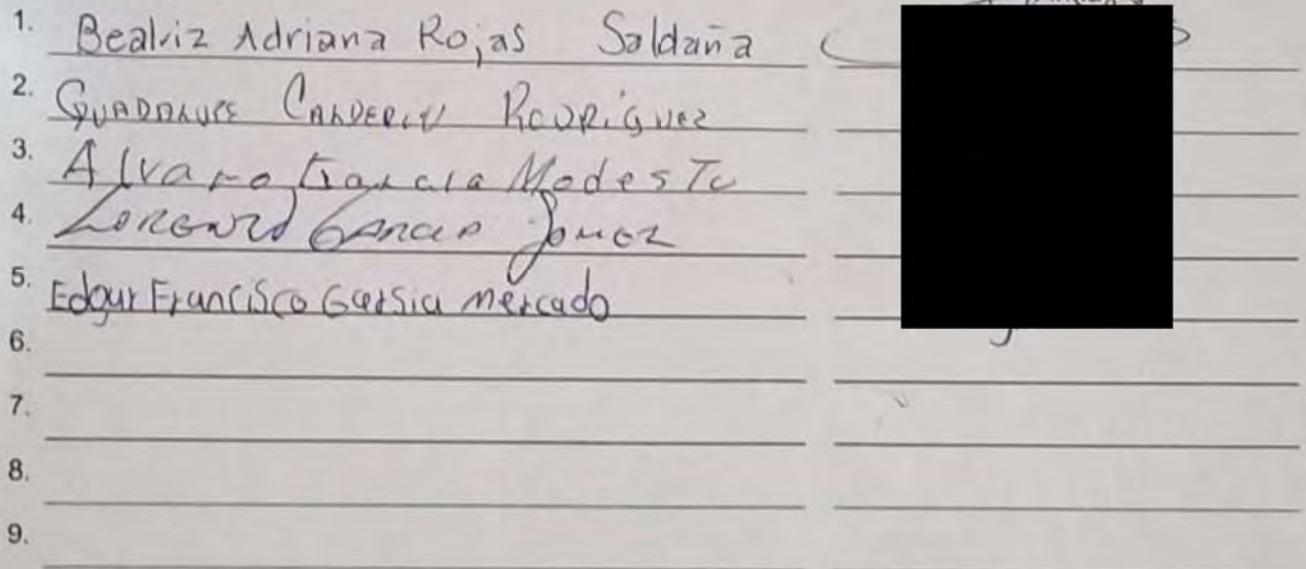 1. Bealriz Adriana Rojas Saldaña
2. GUADALUPE CALDERON RODRIGUEZ
3. Alvaro Modesto
4. Lorenzo Garcia Gomez
5. Edgar Francisco Garsia mercado
6.
7.
8.
9.